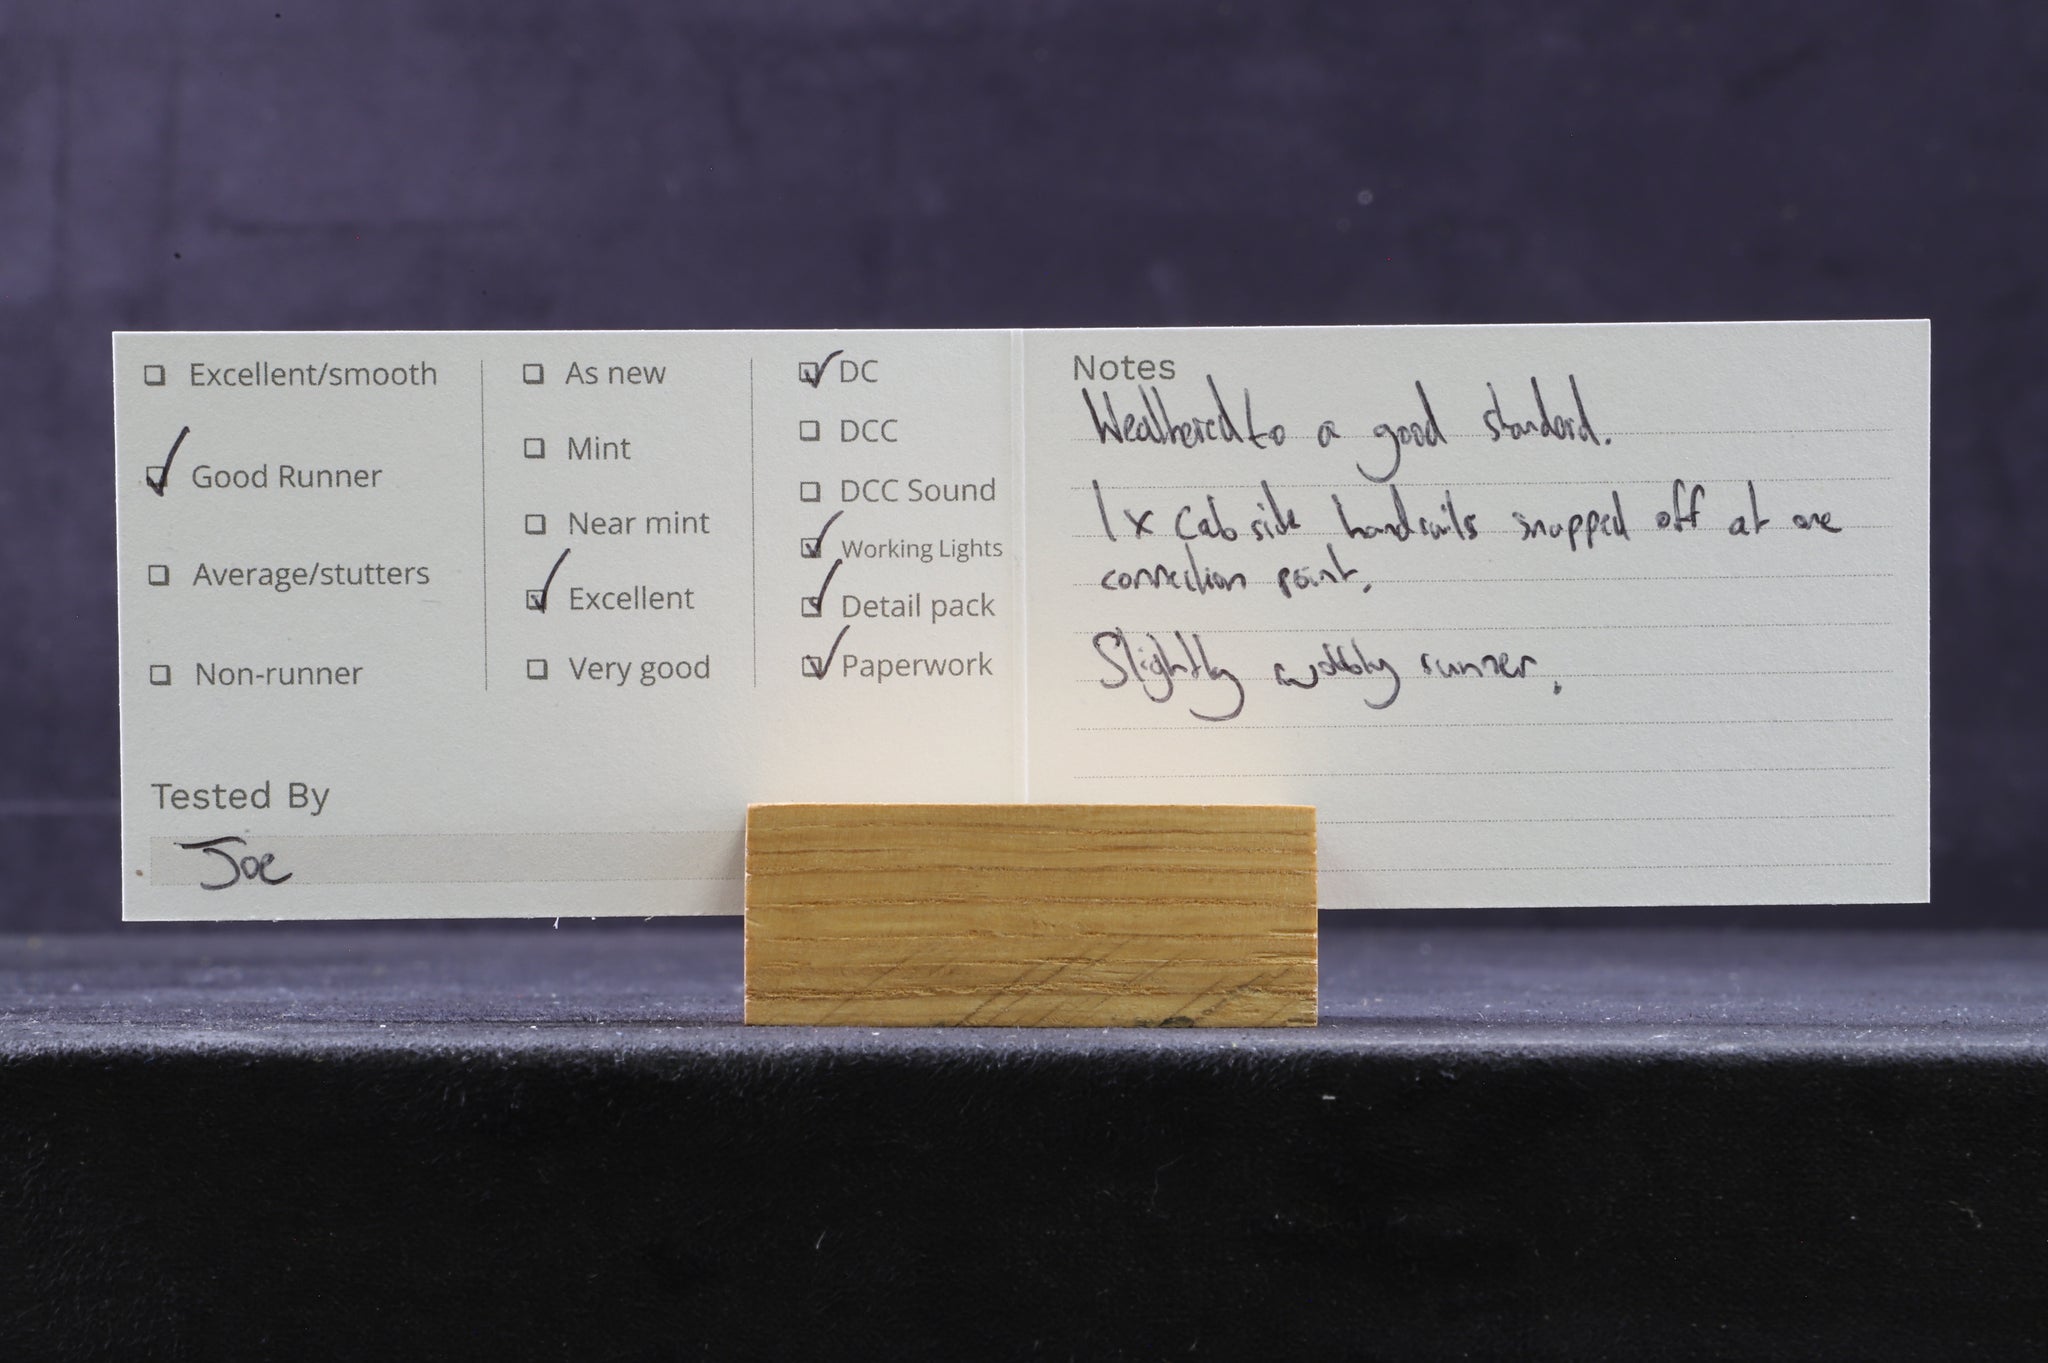 Excellent/smooth
Good Runner
Average/stutters
Non-runner
As new
Mint
Near mint
Excellent
Very good
DC
DCC
DCC Sound
Working Lights
Detail pack
Paperwork
Tested By
Joe
Notes
Weathered to a good standard.
1 x Cab side handrails snapped off at one
connection point.
Slightly wobbly runner.